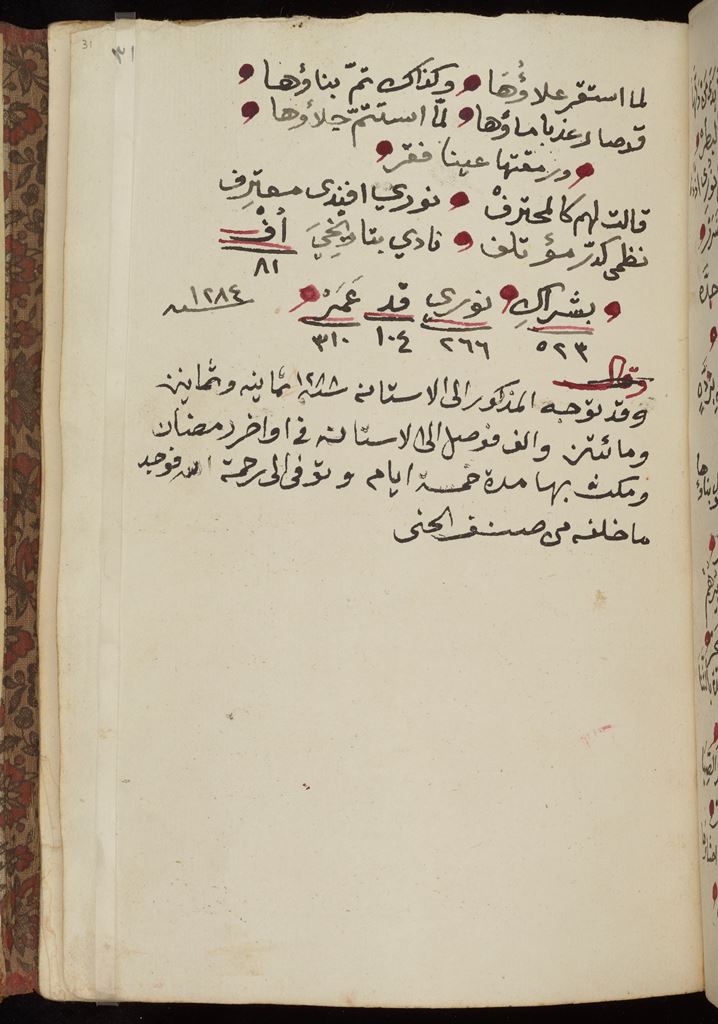 31
٣١
لما استقر علاؤُهَا وكذاك تمّ بناؤها
قد صار عذبا ماؤها لمّا استتمّ جلاؤها
ورمقتها عينا فقر
قالت لهم كالمحترفْ نوري افندى معترف
نظمى كدرّ مؤتلف نادي بتاريخِيَ أفْ
٨١
بشراكِ نورى قد عَمَرْ ١٢٨٤ سنه
٥٢٣ ٢٦٦ ١٠٤ ٣١٠
وقد توجه المذكور الى الاستانه سنة ١٢٨٨ ثمانيه وثمانين
ومائتين والف فوصل الى الاستانه فى اواخر رمضان
ومكث بها مدة خمسة ايام وتوفى الى رحمة الله فوجد
ما خلفه من صنف الجنى